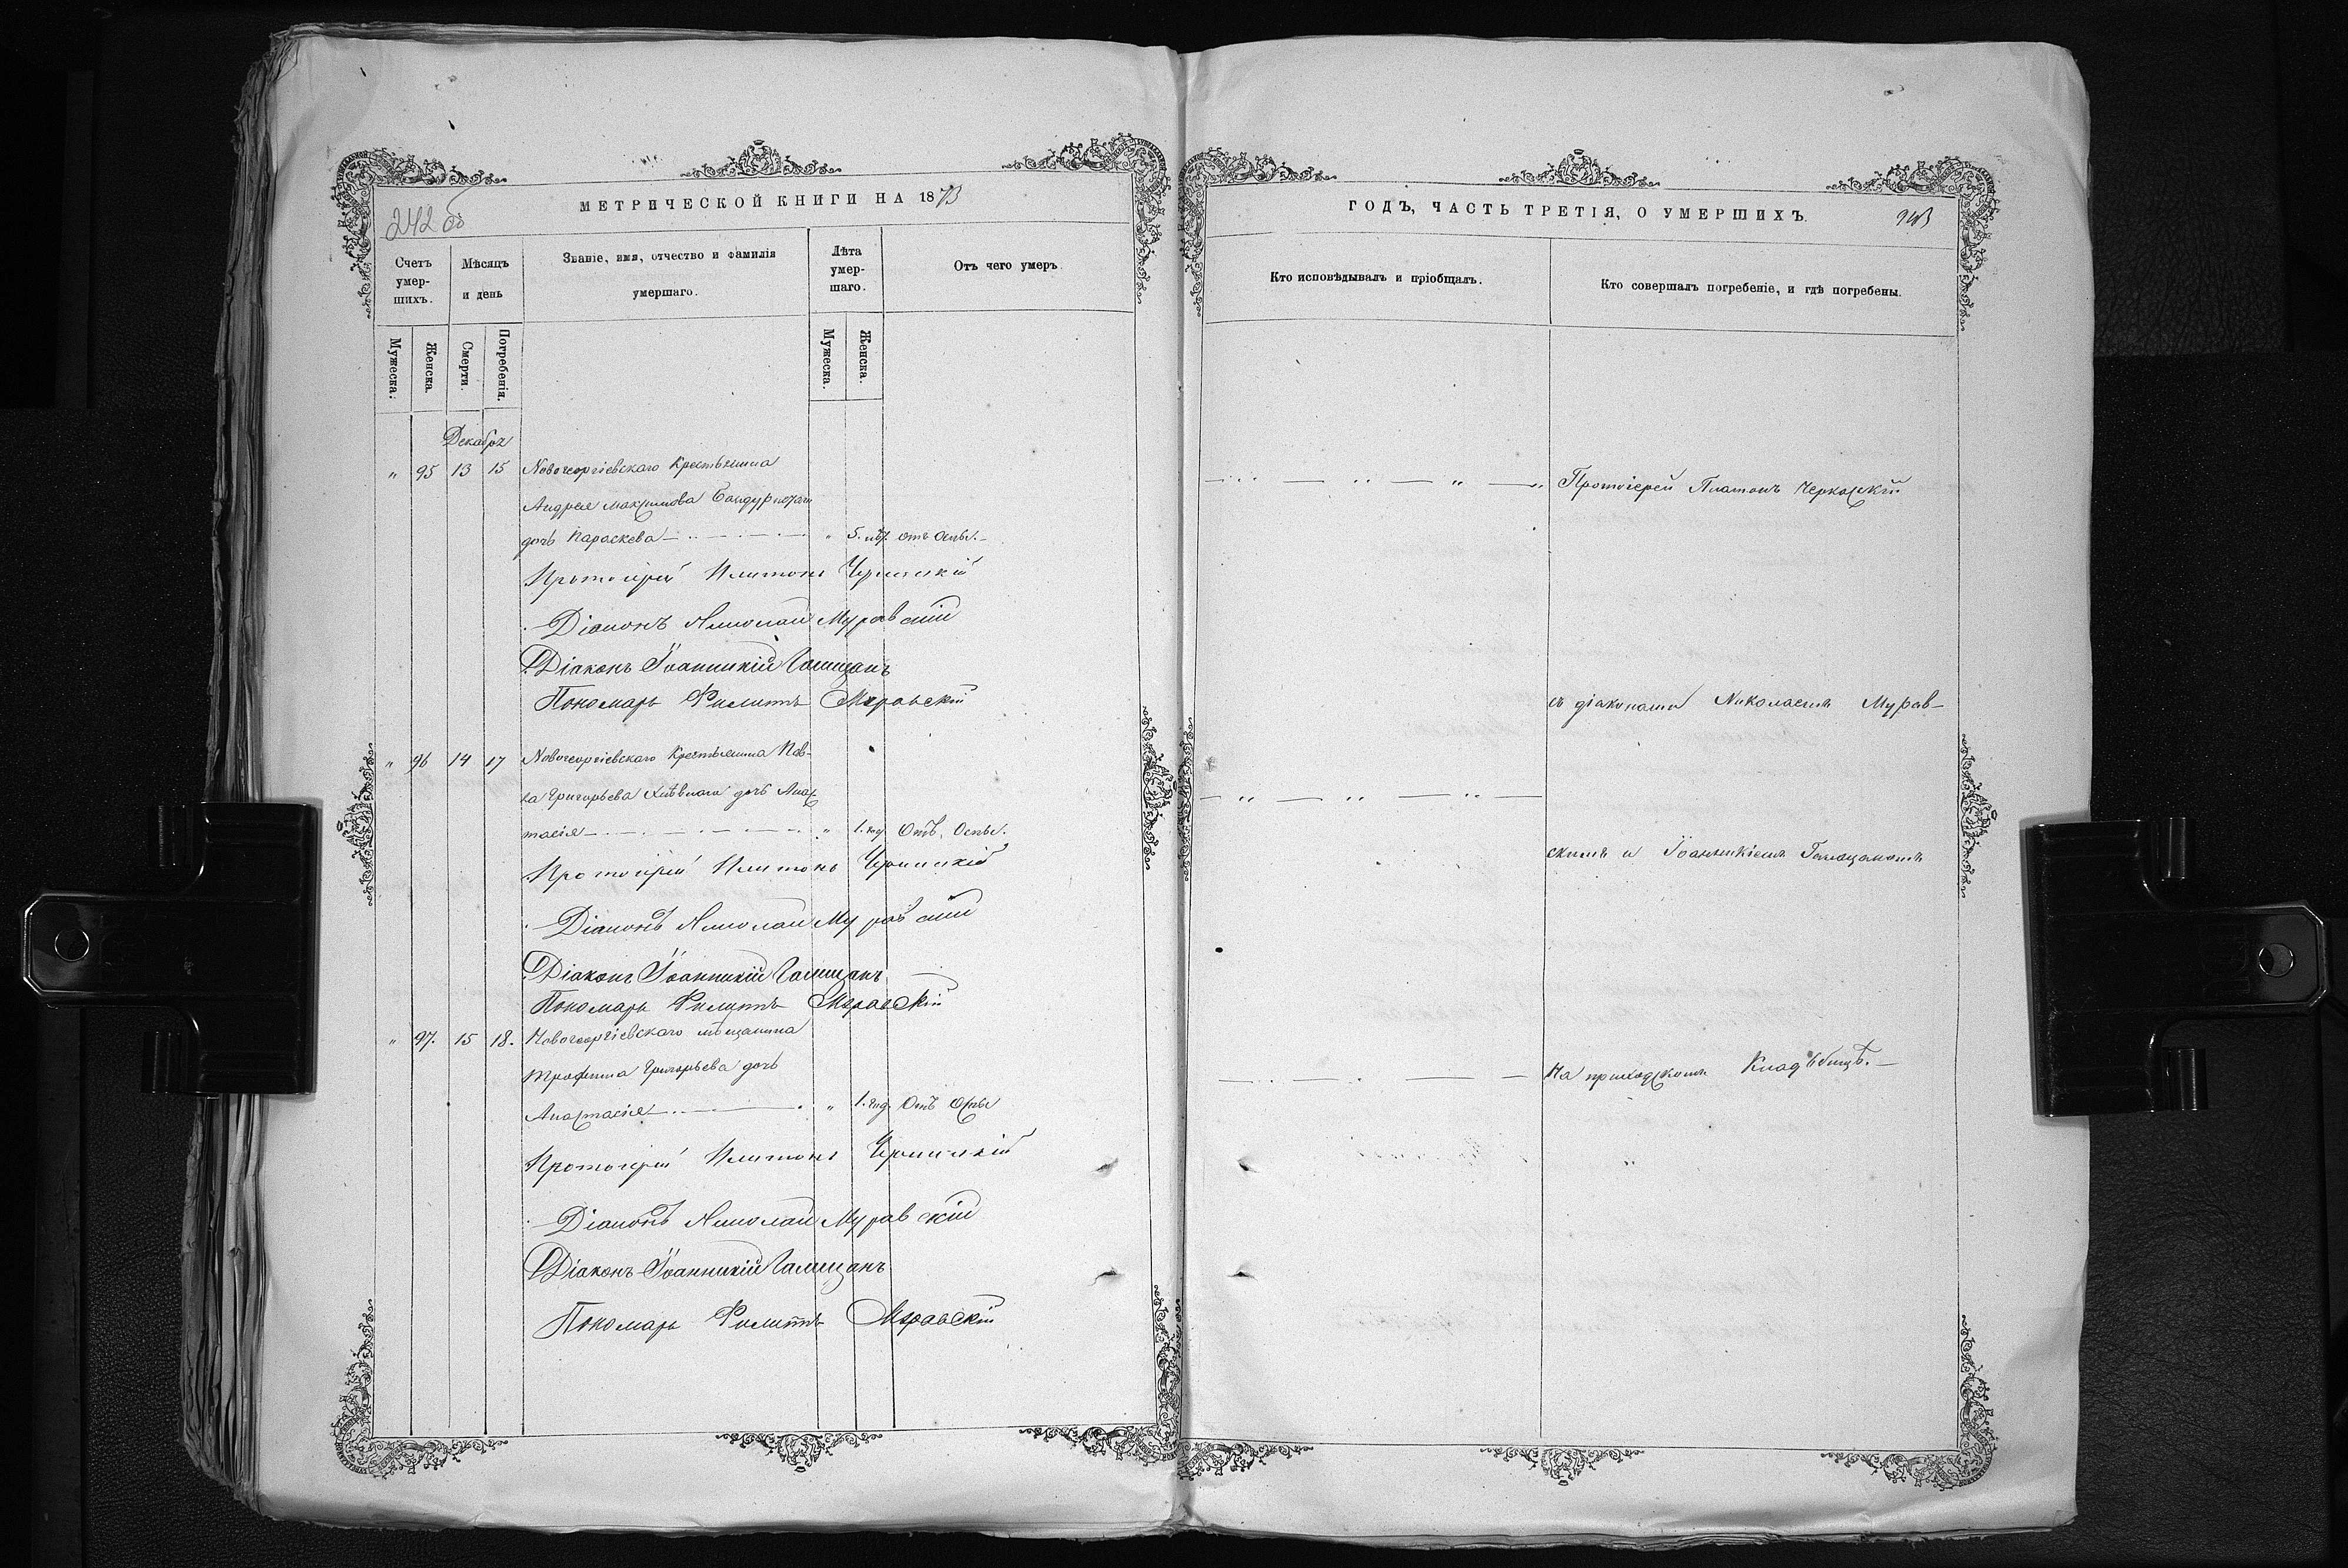 МЕТРИЧЕСКОЙ КНИГИ НА 1873
242 об
Счетъ умершихъ.
Мѣсяцъ и день
Званіе, имя, отчество и фамилія умершаго.
Лѣта умершаго.
Отъ чего умеръ.
Мужеска.
Женска.
Смерти.
Погребенія.
Мужеска.
Женска.
Декабрь
" 95 13 15 Новогеоргіевскаго Крестьянина
Андрея Максимова
дочь Параскева " 5. отъ Оспы.
Протоіерей Платонъ Черкаскій
Діаконъ Николай Муравскій
Діаконъ Іоанникій Галищанъ
Пономарь Филиппъ Муравскій
" 96 14 17 Новогеоргіевскаго Крестьянина Пав-
ла Григорьева дочь Анас
тасія " 1. год. Отъ Оспы.
Протоіерей Платонъ Черкаскій
Діаконъ Николай Муравскій
Діаконъ Іоанникій Галищанъ
Пономарь Филиппъ Муравскій
" 97. 15 18. Новогеоргіевскаго мѣщанина
Трофима Григорьева дочь
Анастасія " 1. год. Отъ Оспы
Протоіерей Платонъ Черкаскій
Діаконъ Николай Муравскій
Діаконъ Іоанникій Галищанъ
Пономарь Филиппъ Муравскій
ГОДЪ, ЧАСТЬ ТРЕТІЯ, О УМЕРШИХЪ.
243
Кто исповѣдывалъ и пріобщалъ.
Кто совершалъ погребеніе, и гдѣ погребены.
Протоіерей Платонъ Черкаскій
съ діаконами Николаемъ Мурав-
скимъ и Іоанникіемъ Галищаномъ
На приходскомъ Кладьбищѣ.